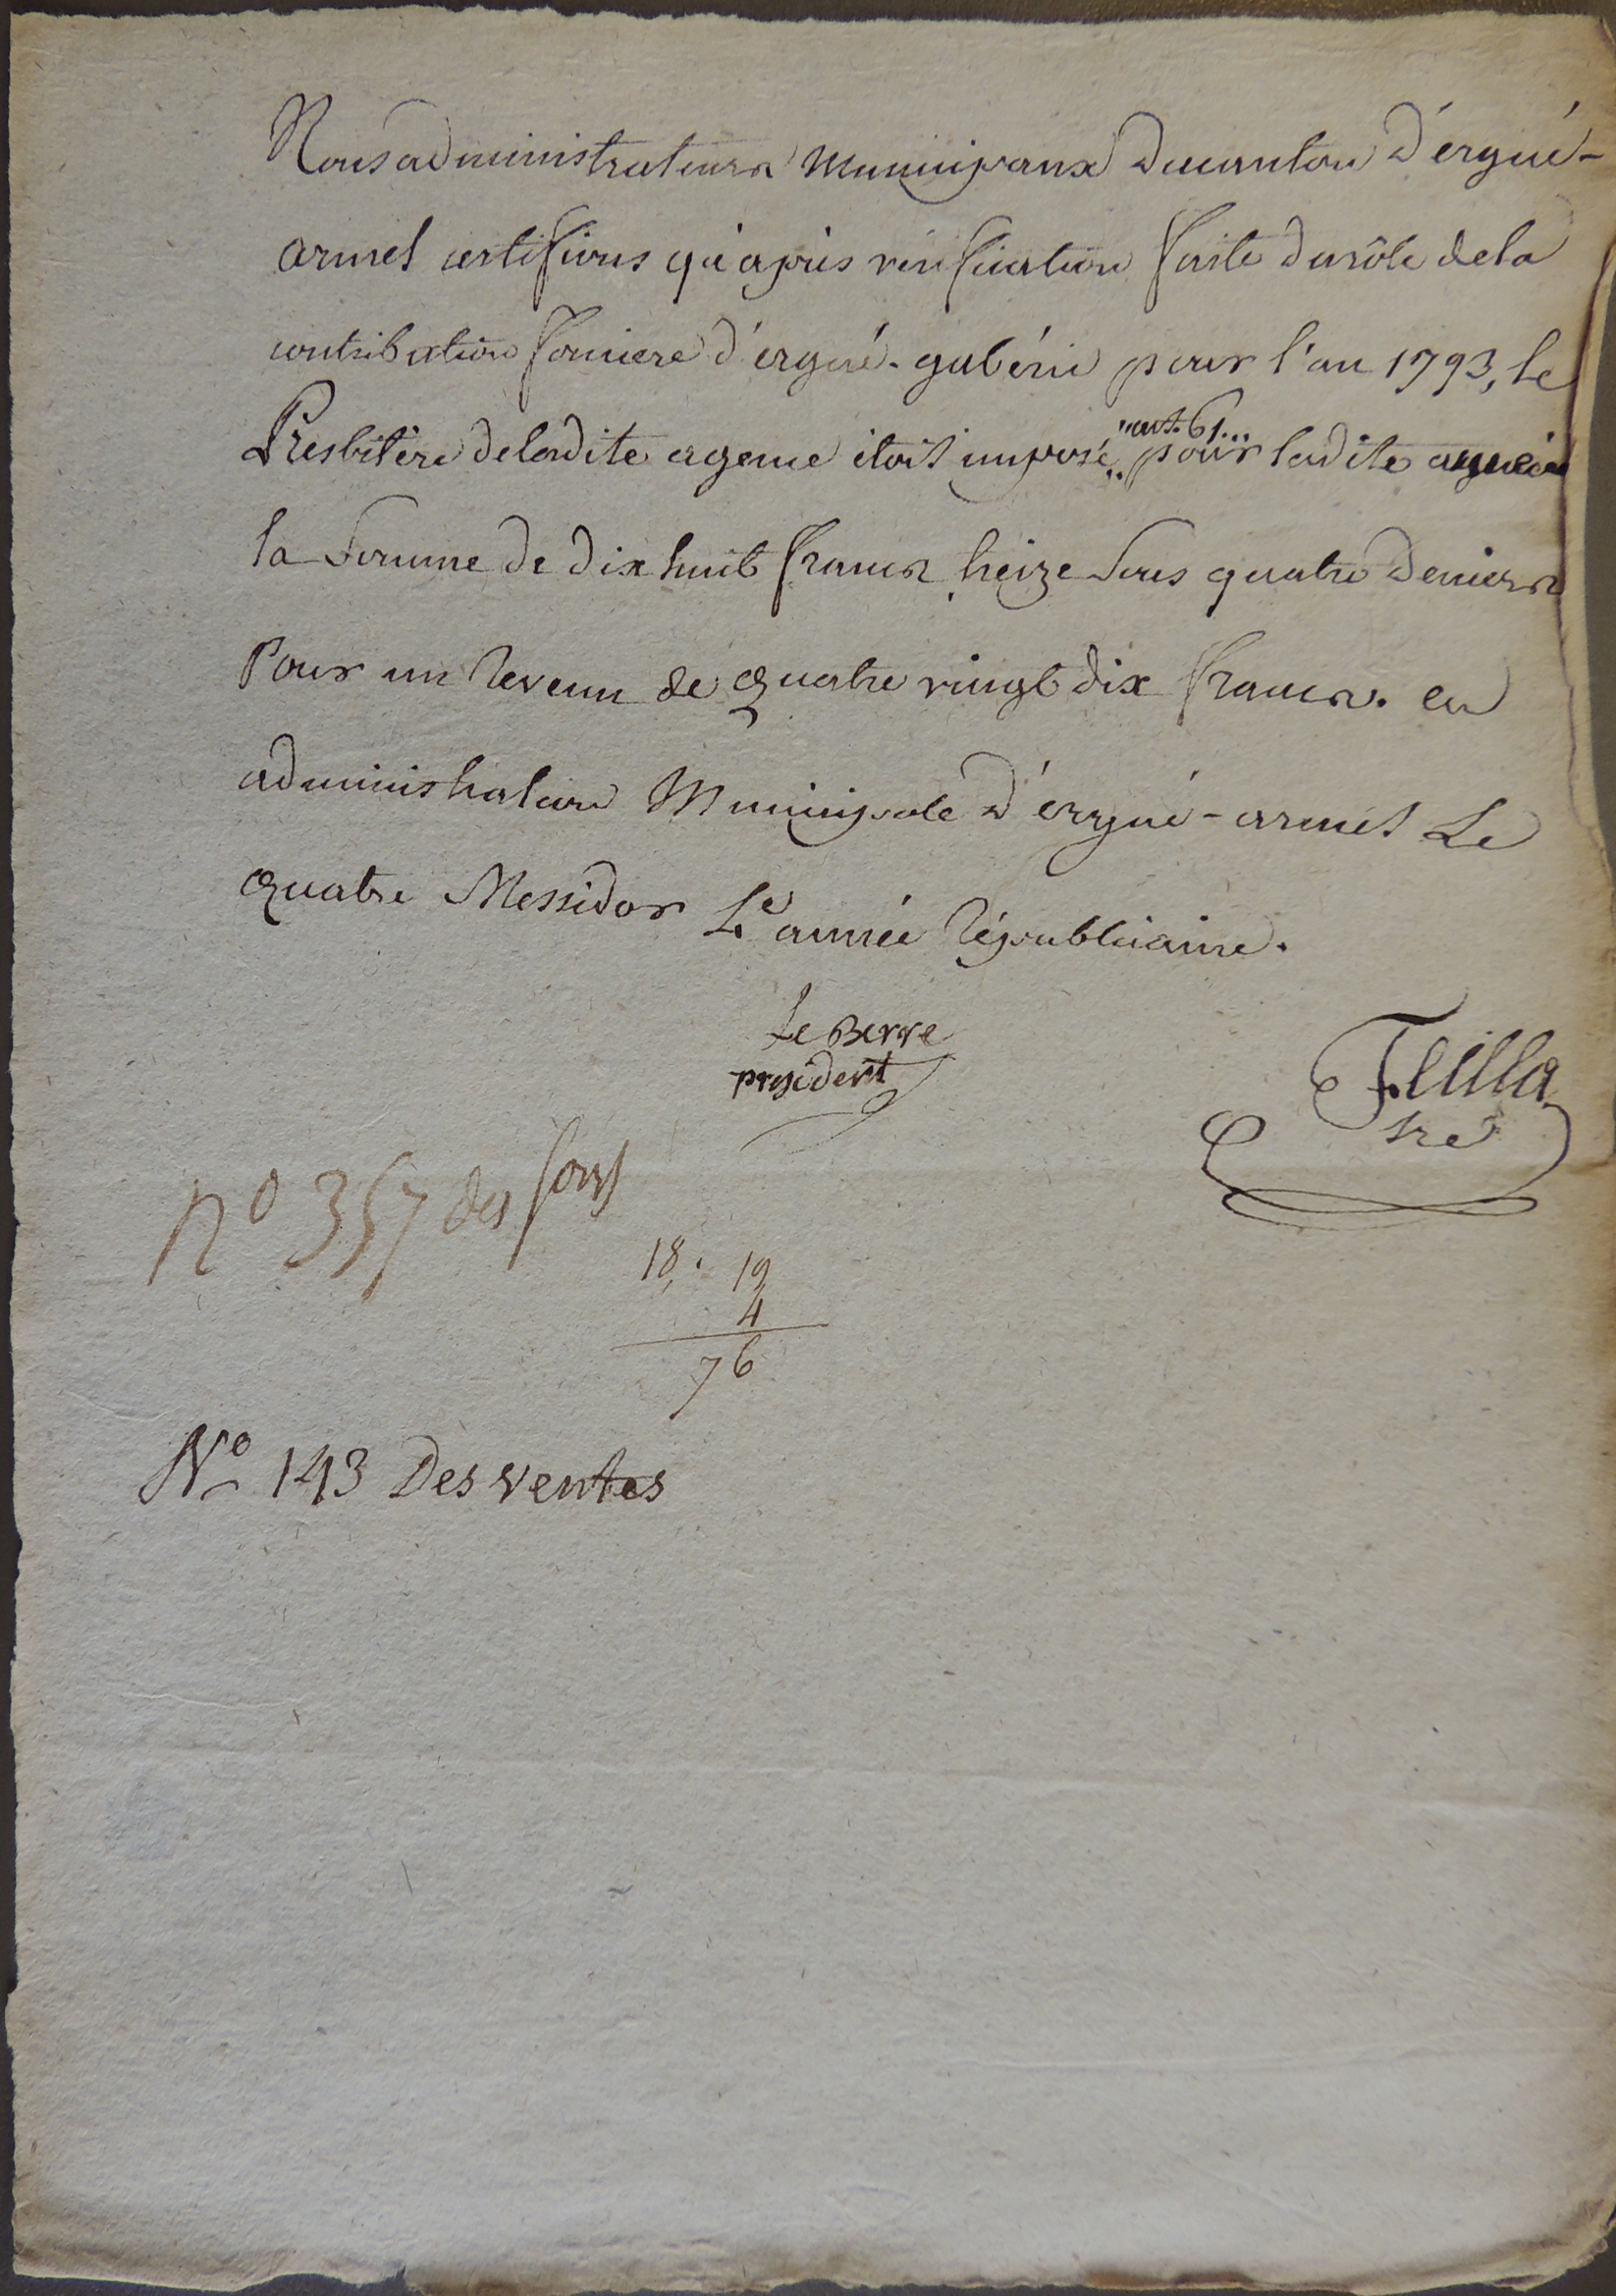 Nous administrateurs Municipaux du canton d'ergué-
armel certifions qu'après vérification faite du rôle de la
contribution fonciere d'ergué-gabéric pour l'an 1793, le
Presbitère de ladite agence étoit imposé "art. 61... pour ladite année
la somme de dix huit francs treize sous quatre deniers
Pour un revenu de quatre vingt dix francs. en
administration Municipale d'ergué-armel Le
quatre Messidor 4e année républicaine.
Le Berre
president
Feilla
sre
no 357 des soms
18. 19
4
76
No 143 Des ventes